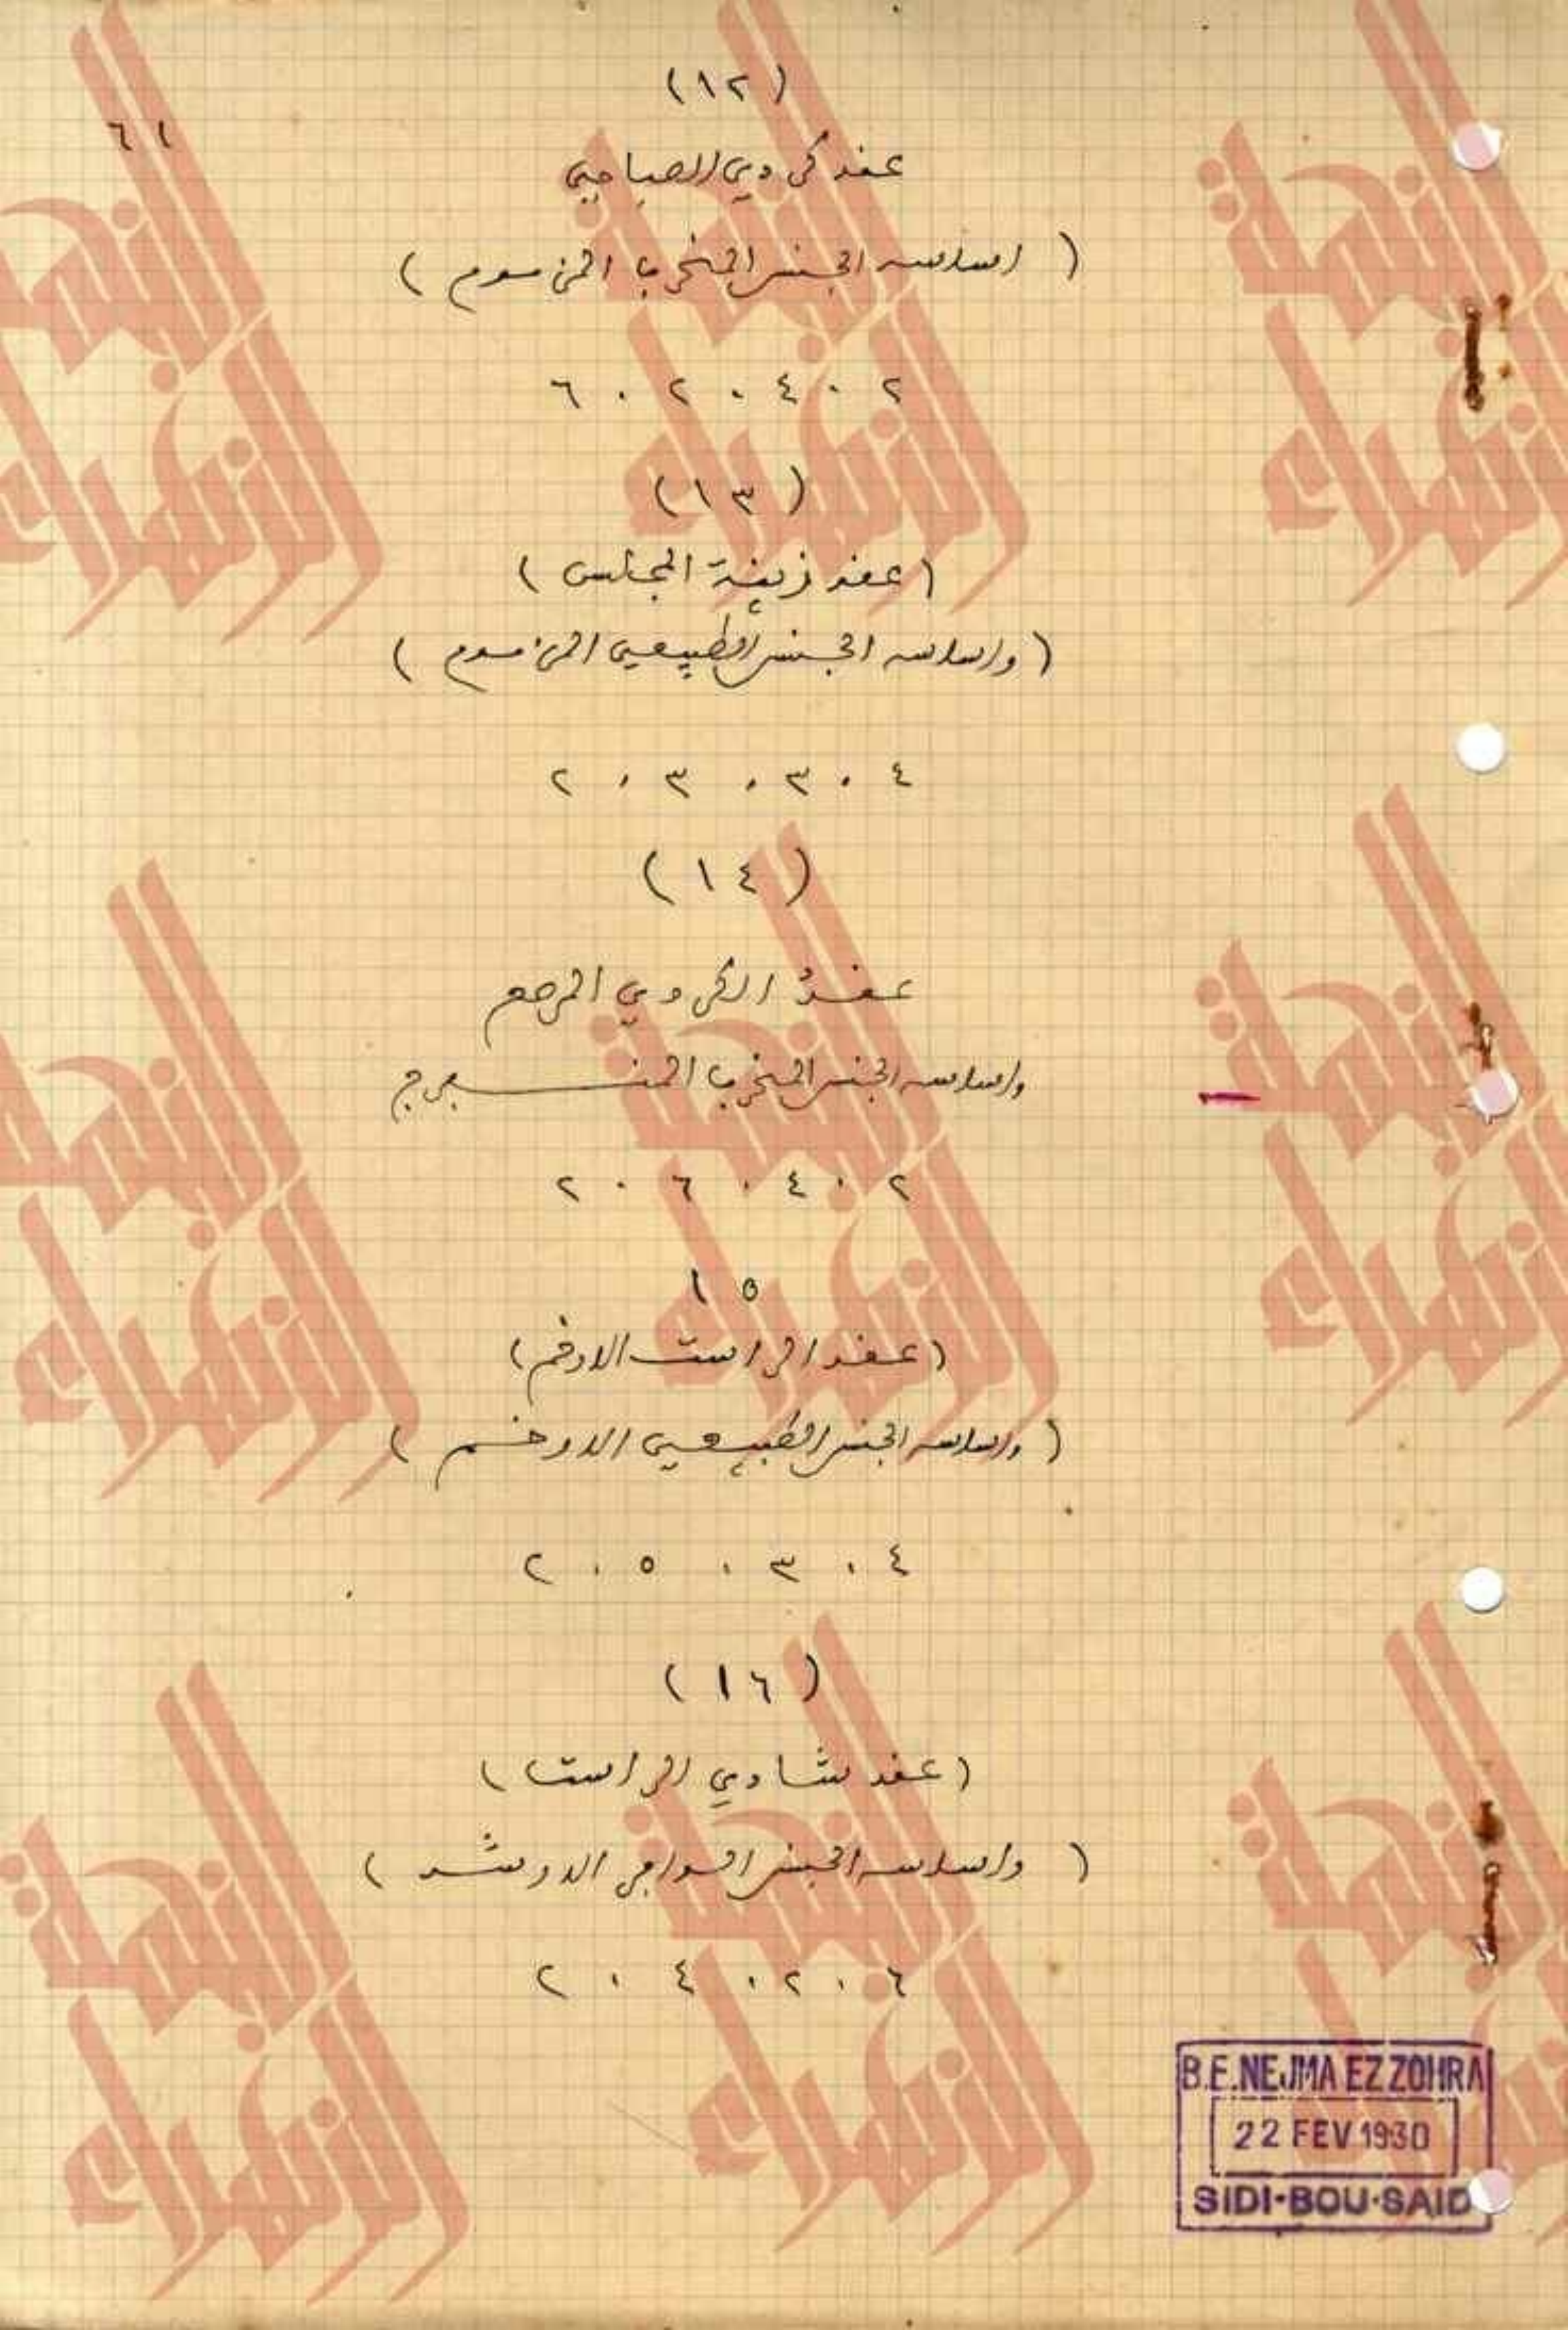 (١٢)
٦١
عقد كردي الصباحي
( اساسه الجنس المخرب المزموم )
٢ . ٤ . ٢ . ٦
(١٣)
(عقد زينة المجلس)
(واساسه الجنس الطبيعي المزموم)
٤ . ٣ . ٣ . ٢
(١٤)
عقد الكردي المرصع
واساسه الجنس المخرب المنعرج
٢ . ٤ . ٦ . ٢
١٥
(عقد الراست الارخم)
(واساسه الجنس الطبيعي الارخم)
٤ . ٣ . ٥ . ٢
(١٦)
(عقد شادي الراست)
(واساسه الجنس الارشد)
٦ . ٢ . ٤ . ٢
B.E.NEJMA EZ ZOHRA
22 FEV 1930
SIDI-BOU-SAID
النجمة الزهراء